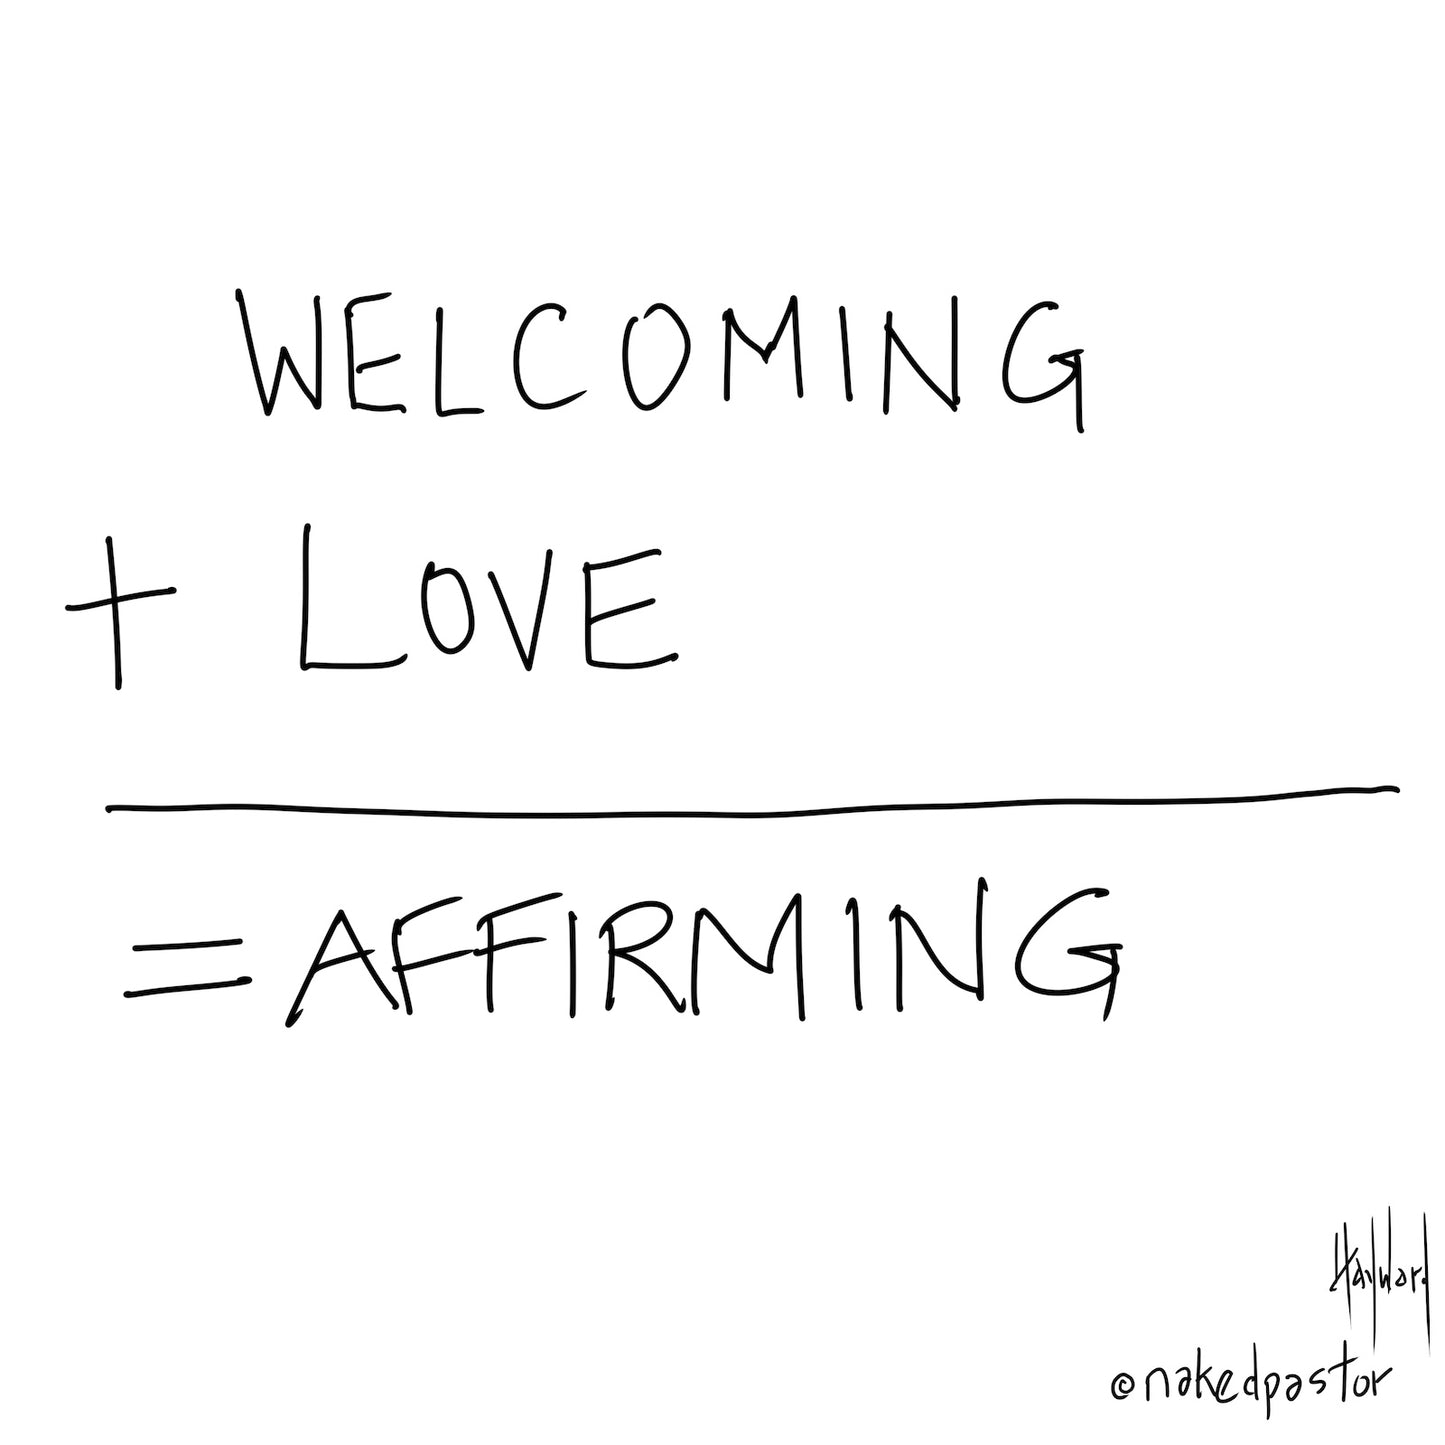 WELCOMING
+ LOVE
= AFFIRMING
Hayward
©nakedpastor